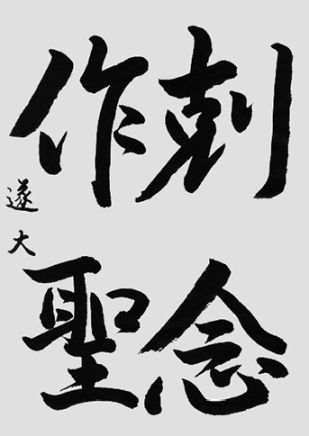 剋念
作聖
遂大